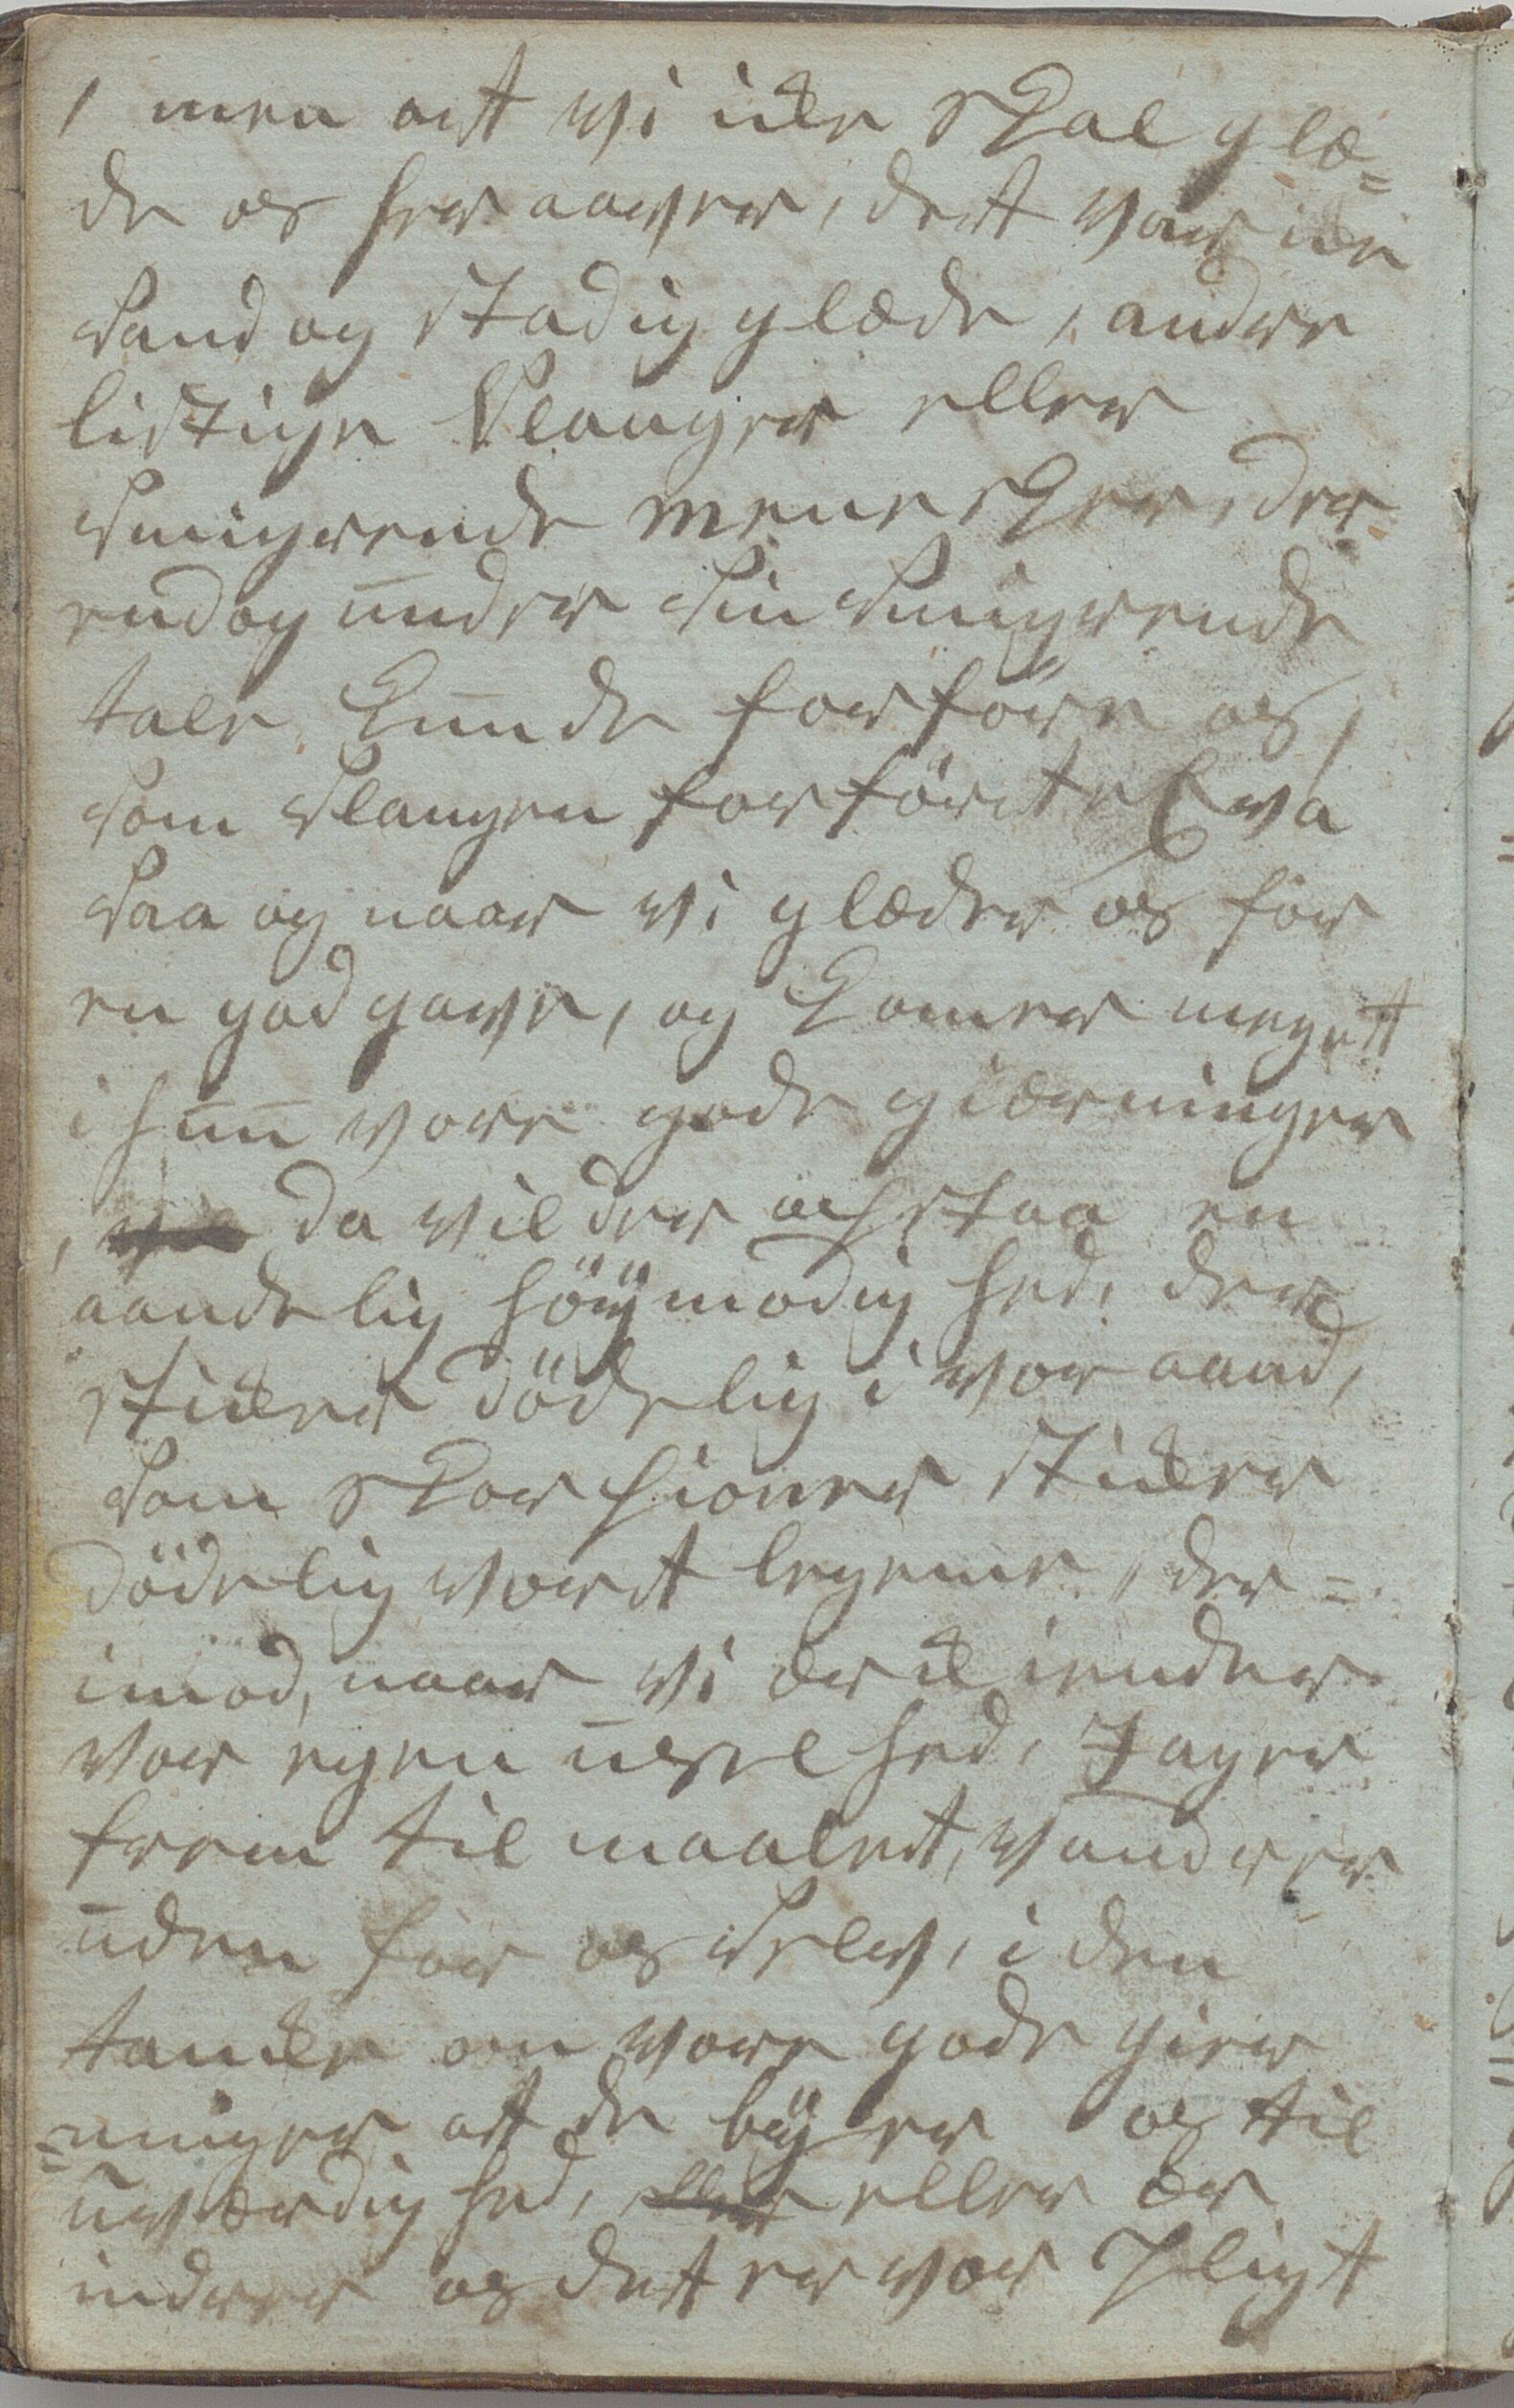 , men att vi icke skal glæ=
de os her aaver, dett var icke
Sand og stadig glæde, andre
listige Slanger eller
Smigrende menesker, der
endog under sin Smigrende
tale kunde forføre os,
som Slangen forförte Eva
Saa og naar vi glæder os for
en god gave, og komer megett
ihuu vore gode gierninger
, da vil der opstaa en
aandelig höÿmodighed, der
sticker dödelig i vor aand,
som skorpioner sticker
dödelig vort legeme, der=
imod, naar vi erkiender
vor egen uselhed, Jager
frem til maalet, vandrer
uden for os selv, i den
tancke om vore gode gier
=ninger att de bÿer os til
uværdighed, eller er
indrer os dett er vor Pligt